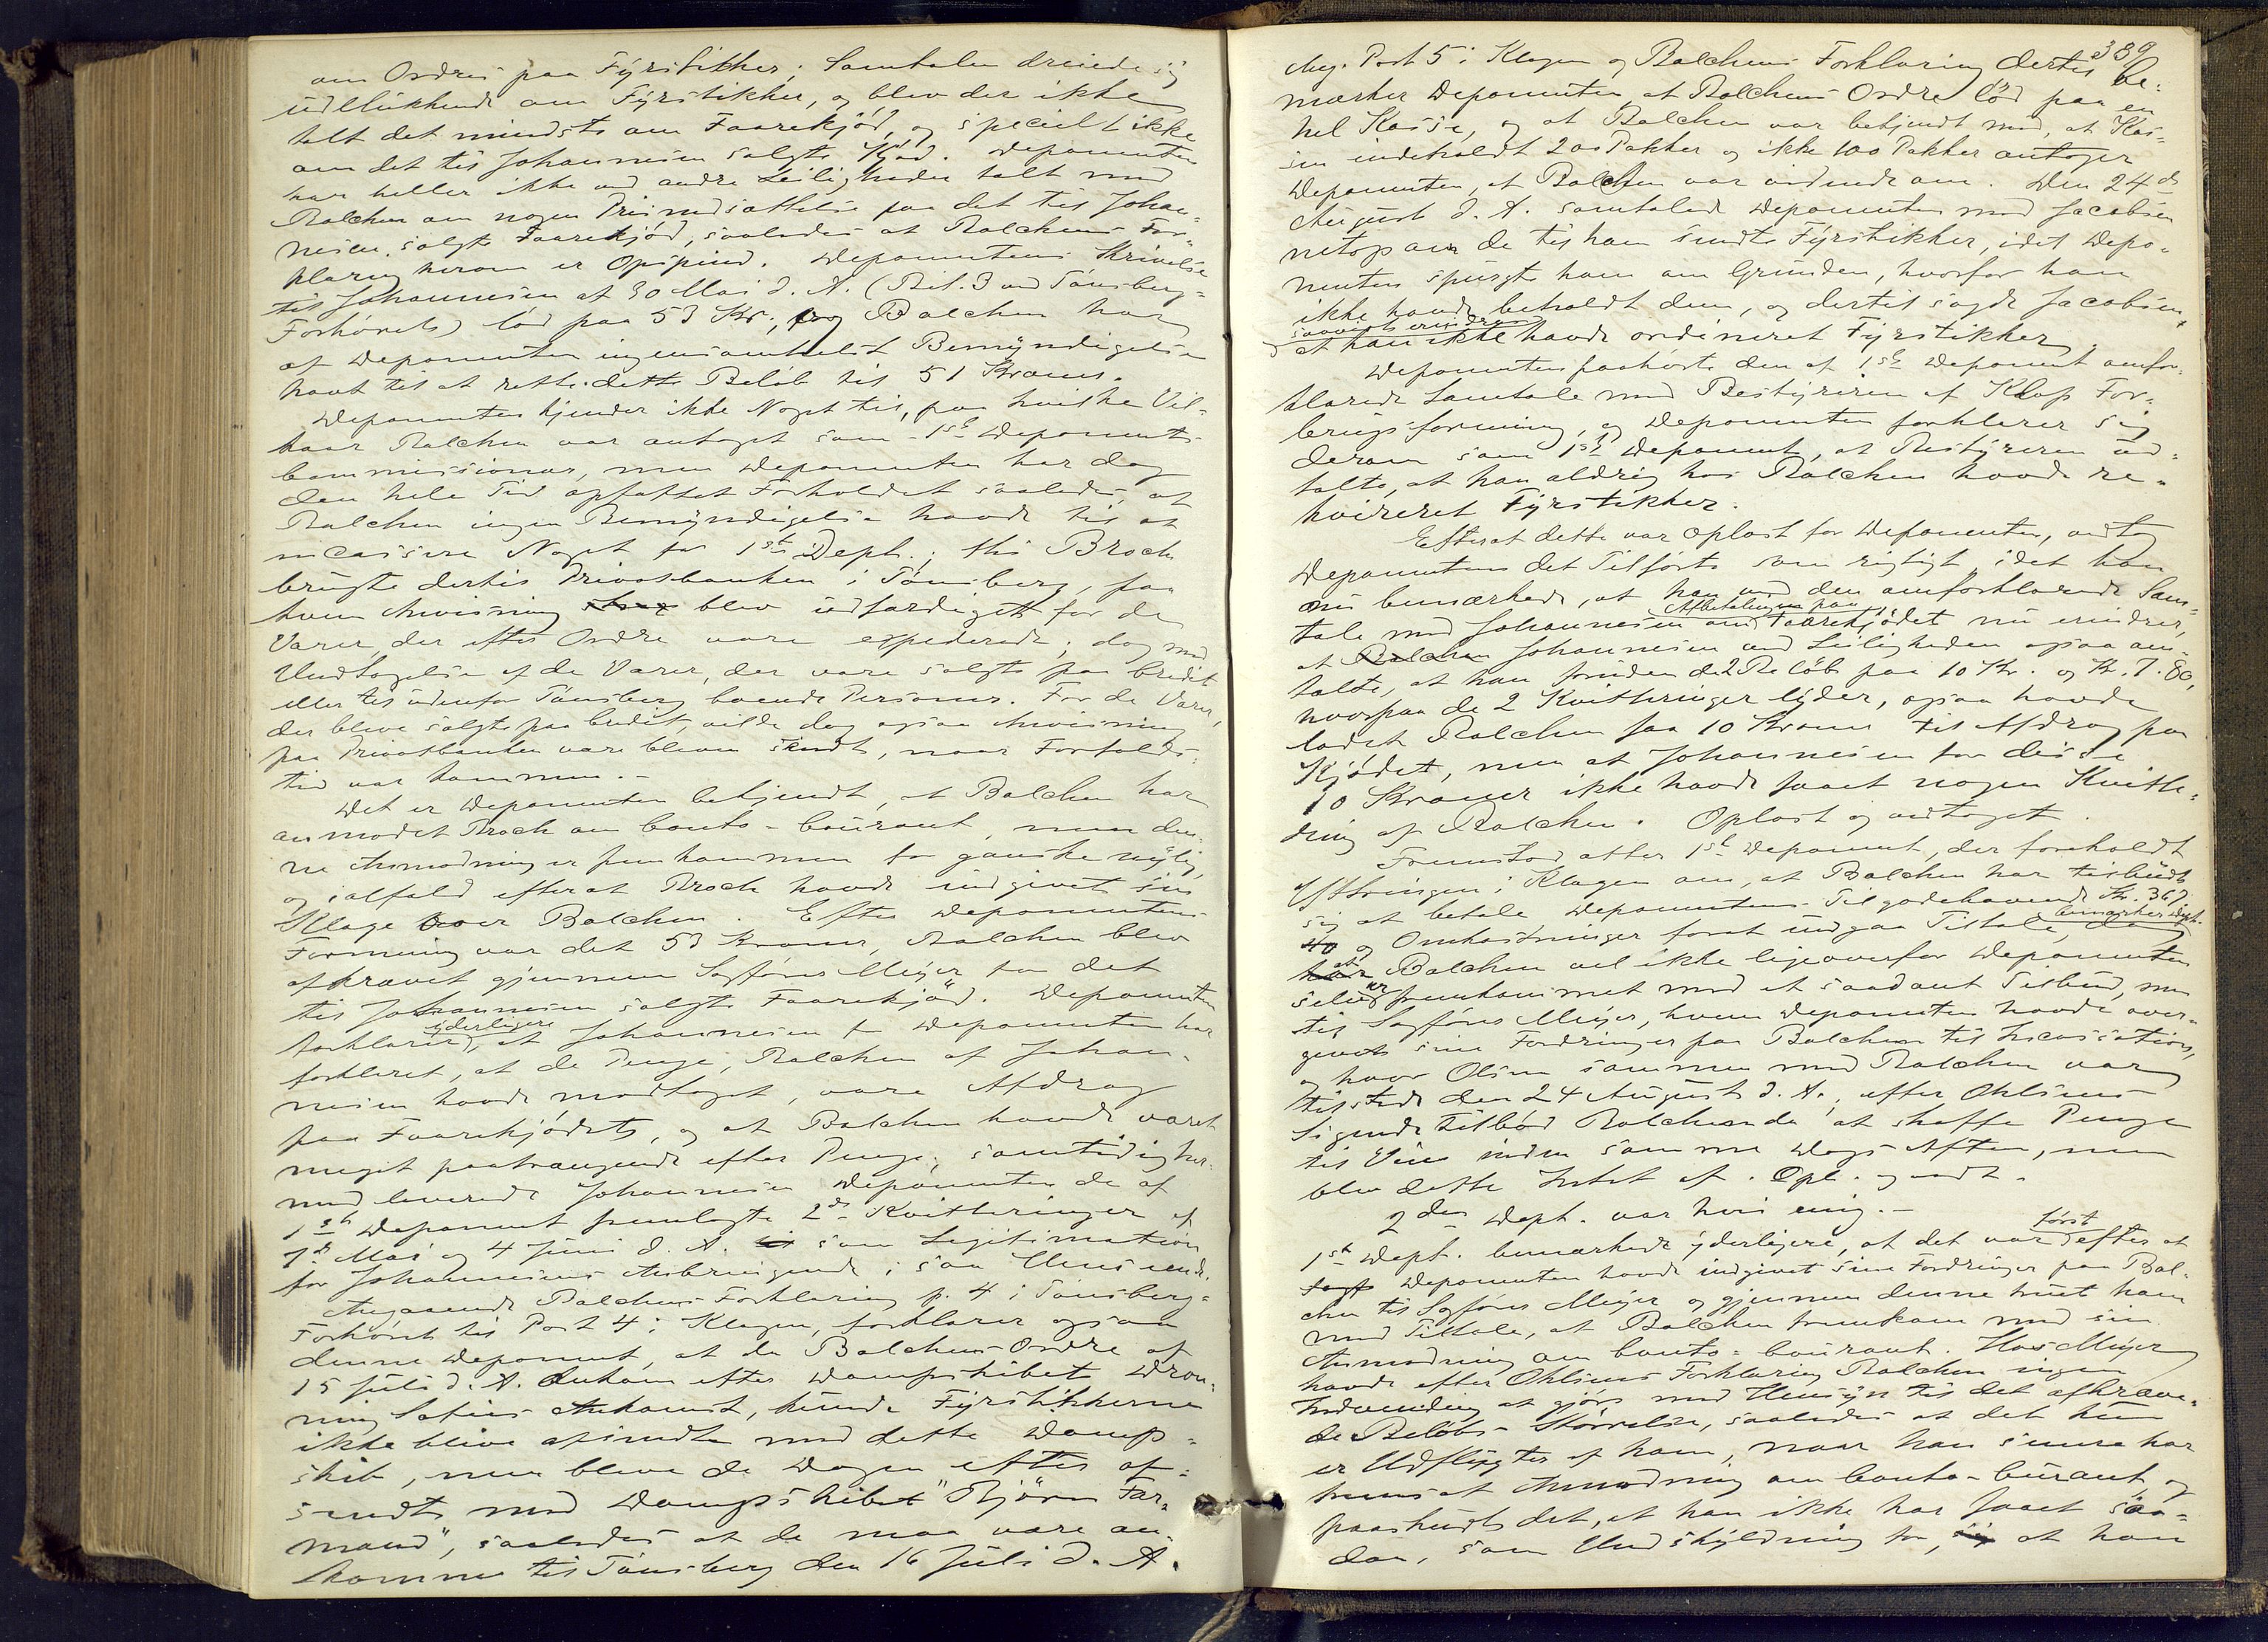 om Ordres paa Fyrstikker; Samtalen dreiede sig
udelukkende om Fyrstikker, og blev der ikke
talt det mindste om Faarekjød, og specielt ikke
om det til Johannesen solgte Kjød. Deponenten
har heller ikke ved andre Leiligheder talt med
Balchen om nogen Prisnedsættelse paa det til Johan-
nesen solgte Faarekjød, saaledes at Balchens For-
klaring herom er Opspind. Deponentens Skrivelse
til Johannesen af 30 Mai d. A. (Bil. 3 ved Tönsberg-
Forhöret) lød paa 53 Kr., og Balchen har
af Deponenten ingensomhelst Bemyndigelse
havt til at rette dette Beløb til 51 Kroner.
Deponenten kjender ikke Noget til, paa hvilke Vil-
kaar Balchen var antaget som 1ste Deponents
Commissionær, men Deponenten har dog
den hele Tid opfattet Forholdet saaledes, at
Balchen ingen Bemyndigelse havde til at
incassere Noget for 1ste Dept.; thi Broch
brugte dertil Privatbanken i Tönsberg, paa
hvem Anvisning blev udfærdiget for de
Varer, der efter Ordre vare expederede; dog med
Undtagelse af de Varer, der vare solgte paa Credit
eller til udenfor Tönsberg boende Personer. For de Varer,
der bleve solgte paa Credit, vilde dog ogsaa Anvisning
paa Privatbanken være bleven sendt, naar Forfalds-
tid var kommen.-
Det er Deponenten bekjendt, at Balchen har
anmodet Broch om Conto-Courant, men den-
ne Anmodning er fremkommen for ganske nylig,
og ialfald efterat Broch havde indgivet sin
Klage over Balchen. Efter Deponentens
Formening var det 53 Kroner, Balchen blev
afkrævet gjennem Sagfører Meyer for det
til Johannesen solgte Faarekjød. Deponenten
forklarer yderligere, at Johannesen for Deponenten har
forklaret, at de Penge, Balchen af Johan-
nesen havde modtaget, vare Afdrag
paa Faarekjødet, og at Balchen havde været
meget paatrængende efter Penge; samtidig her-
med leverede Johannesen Deponenten de af
1ste Deponent fremlagte 2de Kvitteringer af
7de Mai og 4 Juni d. A. som Legitimation
for Johannesens Anbringende i saa Henseende.
Angaaende Balchens Forklaring p. 4 i Tönsberg-
Forhöret til Post 4 i Klagen, forklarer ogsaa
denne Deponent, at da Balchens Ordre af
15 Juli d. A. ankom efter Dampskibet Dron-
ning Sofies Ankomst, kunde Fyrstikkerne
ikke blive afsendte med dette Damp-
skib, men bleve de Dagen efter af-
sendt med Dampskibet "Björn Far-
mand", saaledes at de maa være an-
komne til Tönsberg den 16 Juli d. A.
389
Ang. Post 5 i Klagen og Balchens Forklaring dertil be-
mærker Deponenten at Balchens Ordre lød paa en
hel Kasse, og at Balchen var bekjendt med, at Kas-
sen indeholdt 200 Pakker og ikke 100 Pakker antager
Deponenten, at Balchen var vidende om. Den 24de
August d. A. samtalede Deponenten med Jacobsen
netop om de til ham sendte Fyrstikker, idet Depo-
nenten spurgte ham om Grunden, hvorfor han
ikke havde beholdt dem, og dertil sagde Jacobsen,
saavidt erindres
at han ikke havde ordineret Fyrstikker.
Deponenten paahørte den af 1ste Deponent omfor-
klarede Samtale med Bestyreren af Klop For-
brugsforening, og Deponenten forklarer sig
derom som 1ste Deponent, at Bestyreren ud-
talte, at han aldrig hos Balchen havde re-
kvireret Fyrstikker.
Efterat dette var oplæst for Deponenten, vedtog
Deponenten det Tilførte som rigtigt, idet han
nu bemærkede, at han ved den omforklarede Sam-
tale med Johannesen om Afbetalingen paa Faarekjødet nu erindrer,
at Johannesen ved Leiligheden ogsaa om-
talte, at han foruden de 2 Beløb paa 10 Kr. og Kr. 7.80,
hvorpaa de 2 Kvitteringer lyder, ogsaa havde
ladet Balchen faa 10 Kroner til Afdrag paa
Kjødet, men at Johannesen for disse
10 Kroner ikke havde faaet nogen Kvitte-
ring af Balchen. Oplæst og vedtaget.
Fremstod atter 1ste Deponent, der foreholdt
Yttringen i Klagen om, at Balchen har tilbudt
sig at betale Deponentens Tilgodehavende Kr. 367.
40 og Omkostninger forat undgaa Tiltale, bemærker Dept.
at Balchen vel ikke ligeoverfor Deponenten
selv er fremkommet med et saadant Tilbud, men
til Sagfører Meyer, hvem Deponenten havde over-
givet sine Fordringer paa Balchen til Incassation,
og hvor Olsen sammen med Balchen var
tilstede den 24 August d. A., efter Ohlsens
Sigende tilbød Balchen da at skaffe Penge
tilveie inden samme Dags Aften, men
blev dette Intet af. Opl. og vedt.
2den Dept. var heri enig.-
1ste Dept. bemærkede yderligere, at det var først efter at
Deponenten havde indgivet sine Fordringer paa Bal-
chen til Sagfører Meyer og gjennem denne truet ham
med Tiltale, at Balchen fremkom med sin
Anmodning om Conto-Courant. Hos Meyer
havde efter Ohlsens Forklaring Balchen ingen
Indvending at gjøre med Hensyn til det afkræve-
de Beløbs Størrelse, saaledes at det kun
er Udflygter af ham, naar han senere har
fremsat Anmodning om Conto-Courant, og
paaskudt det, at han ikke har faaet saa-
dan, som Undskyldning for, at han